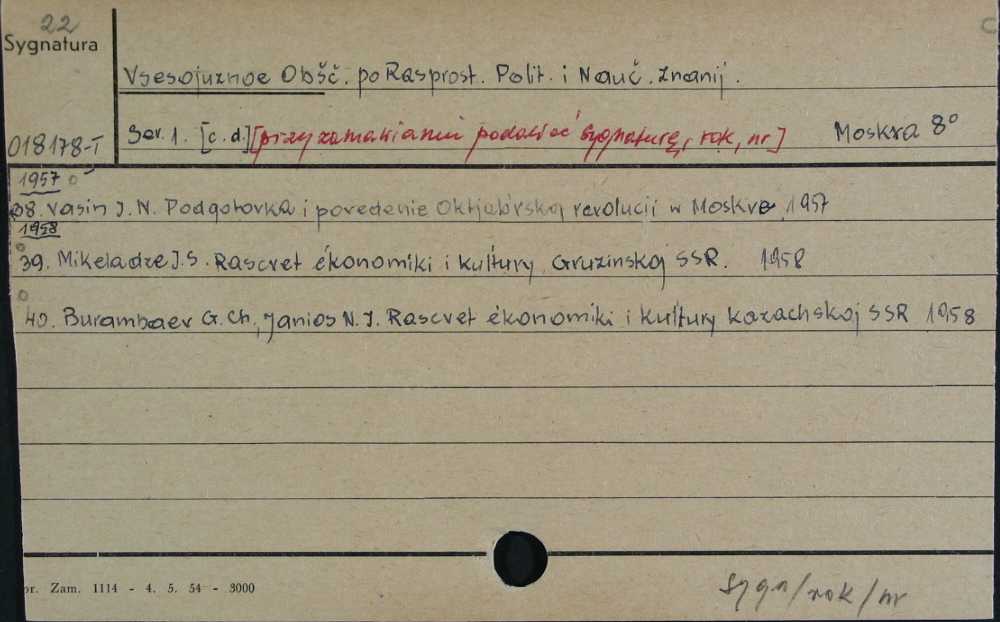 22
Sygnatura
C
Vsesojuznoe Obšč. po Rasprost. Polit. i Nauč. Znanij.
018178-T
Ser. 1. [c.d.] [przy zamawianiu podawać sygnaturę, rok, nr] Moskva 8°
1957
38. Vasin I. N. Podgotovka i povedenie Oktjabr'skoj revolucii w Moskve 1957
1958
39. Mikeladze I. S. Rascvet ėkonomiki i kul'tury Gruzinskoj SSR. 1958
40. Burambaev G. Ch., Janios N. I. Rascvet ėkonomiki i kul'tury kazachskoj SSR 1958
or. Zam. 1114 - 4. 5. 54 - 3000
Sygn/rok/nr